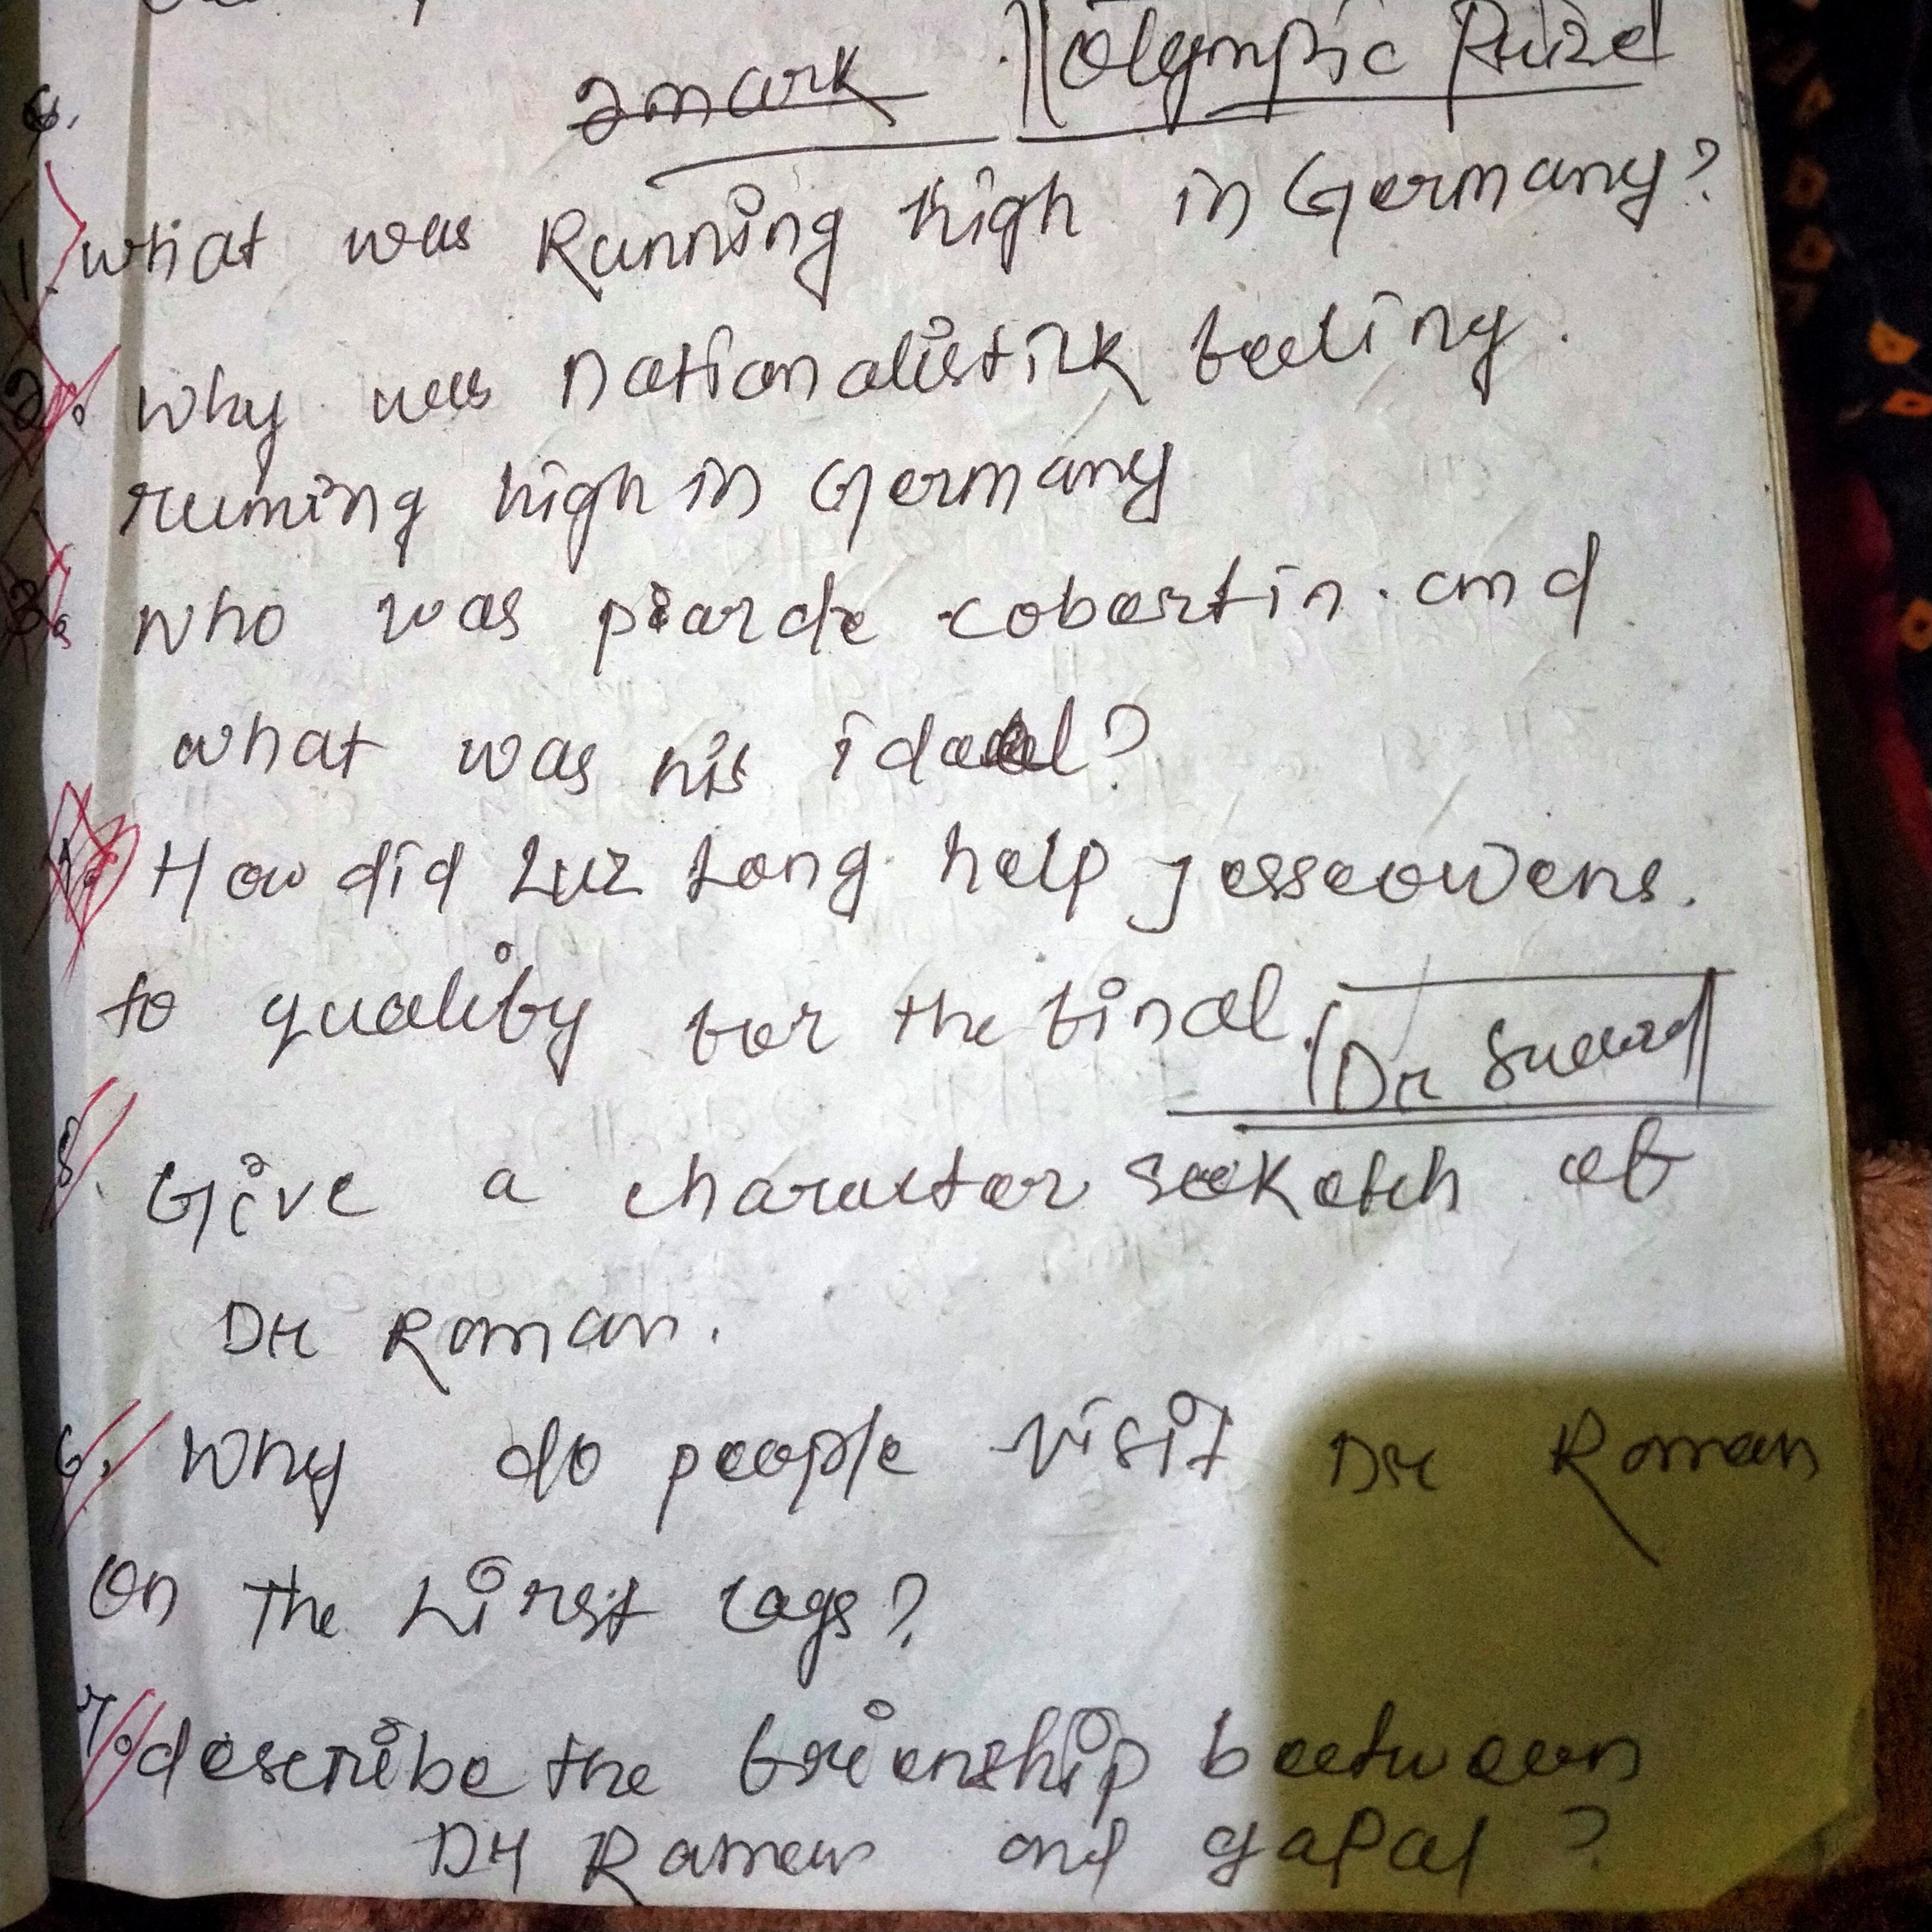 2mark
Olympic Prized
1. What was Running high in Germany?
2. Why was nationalistick feeling.
running high in Germany
3. Who was piarde cobertin. and
what was his ideal?
How did Luz Long help jesseowens.
to qualify for the final.
Dr
Give a character seeketch of
Dr Roman.
6. Why do people visit Dr Roman
On the first
7. describe the frienship beetween
Dr Raman and gapal?